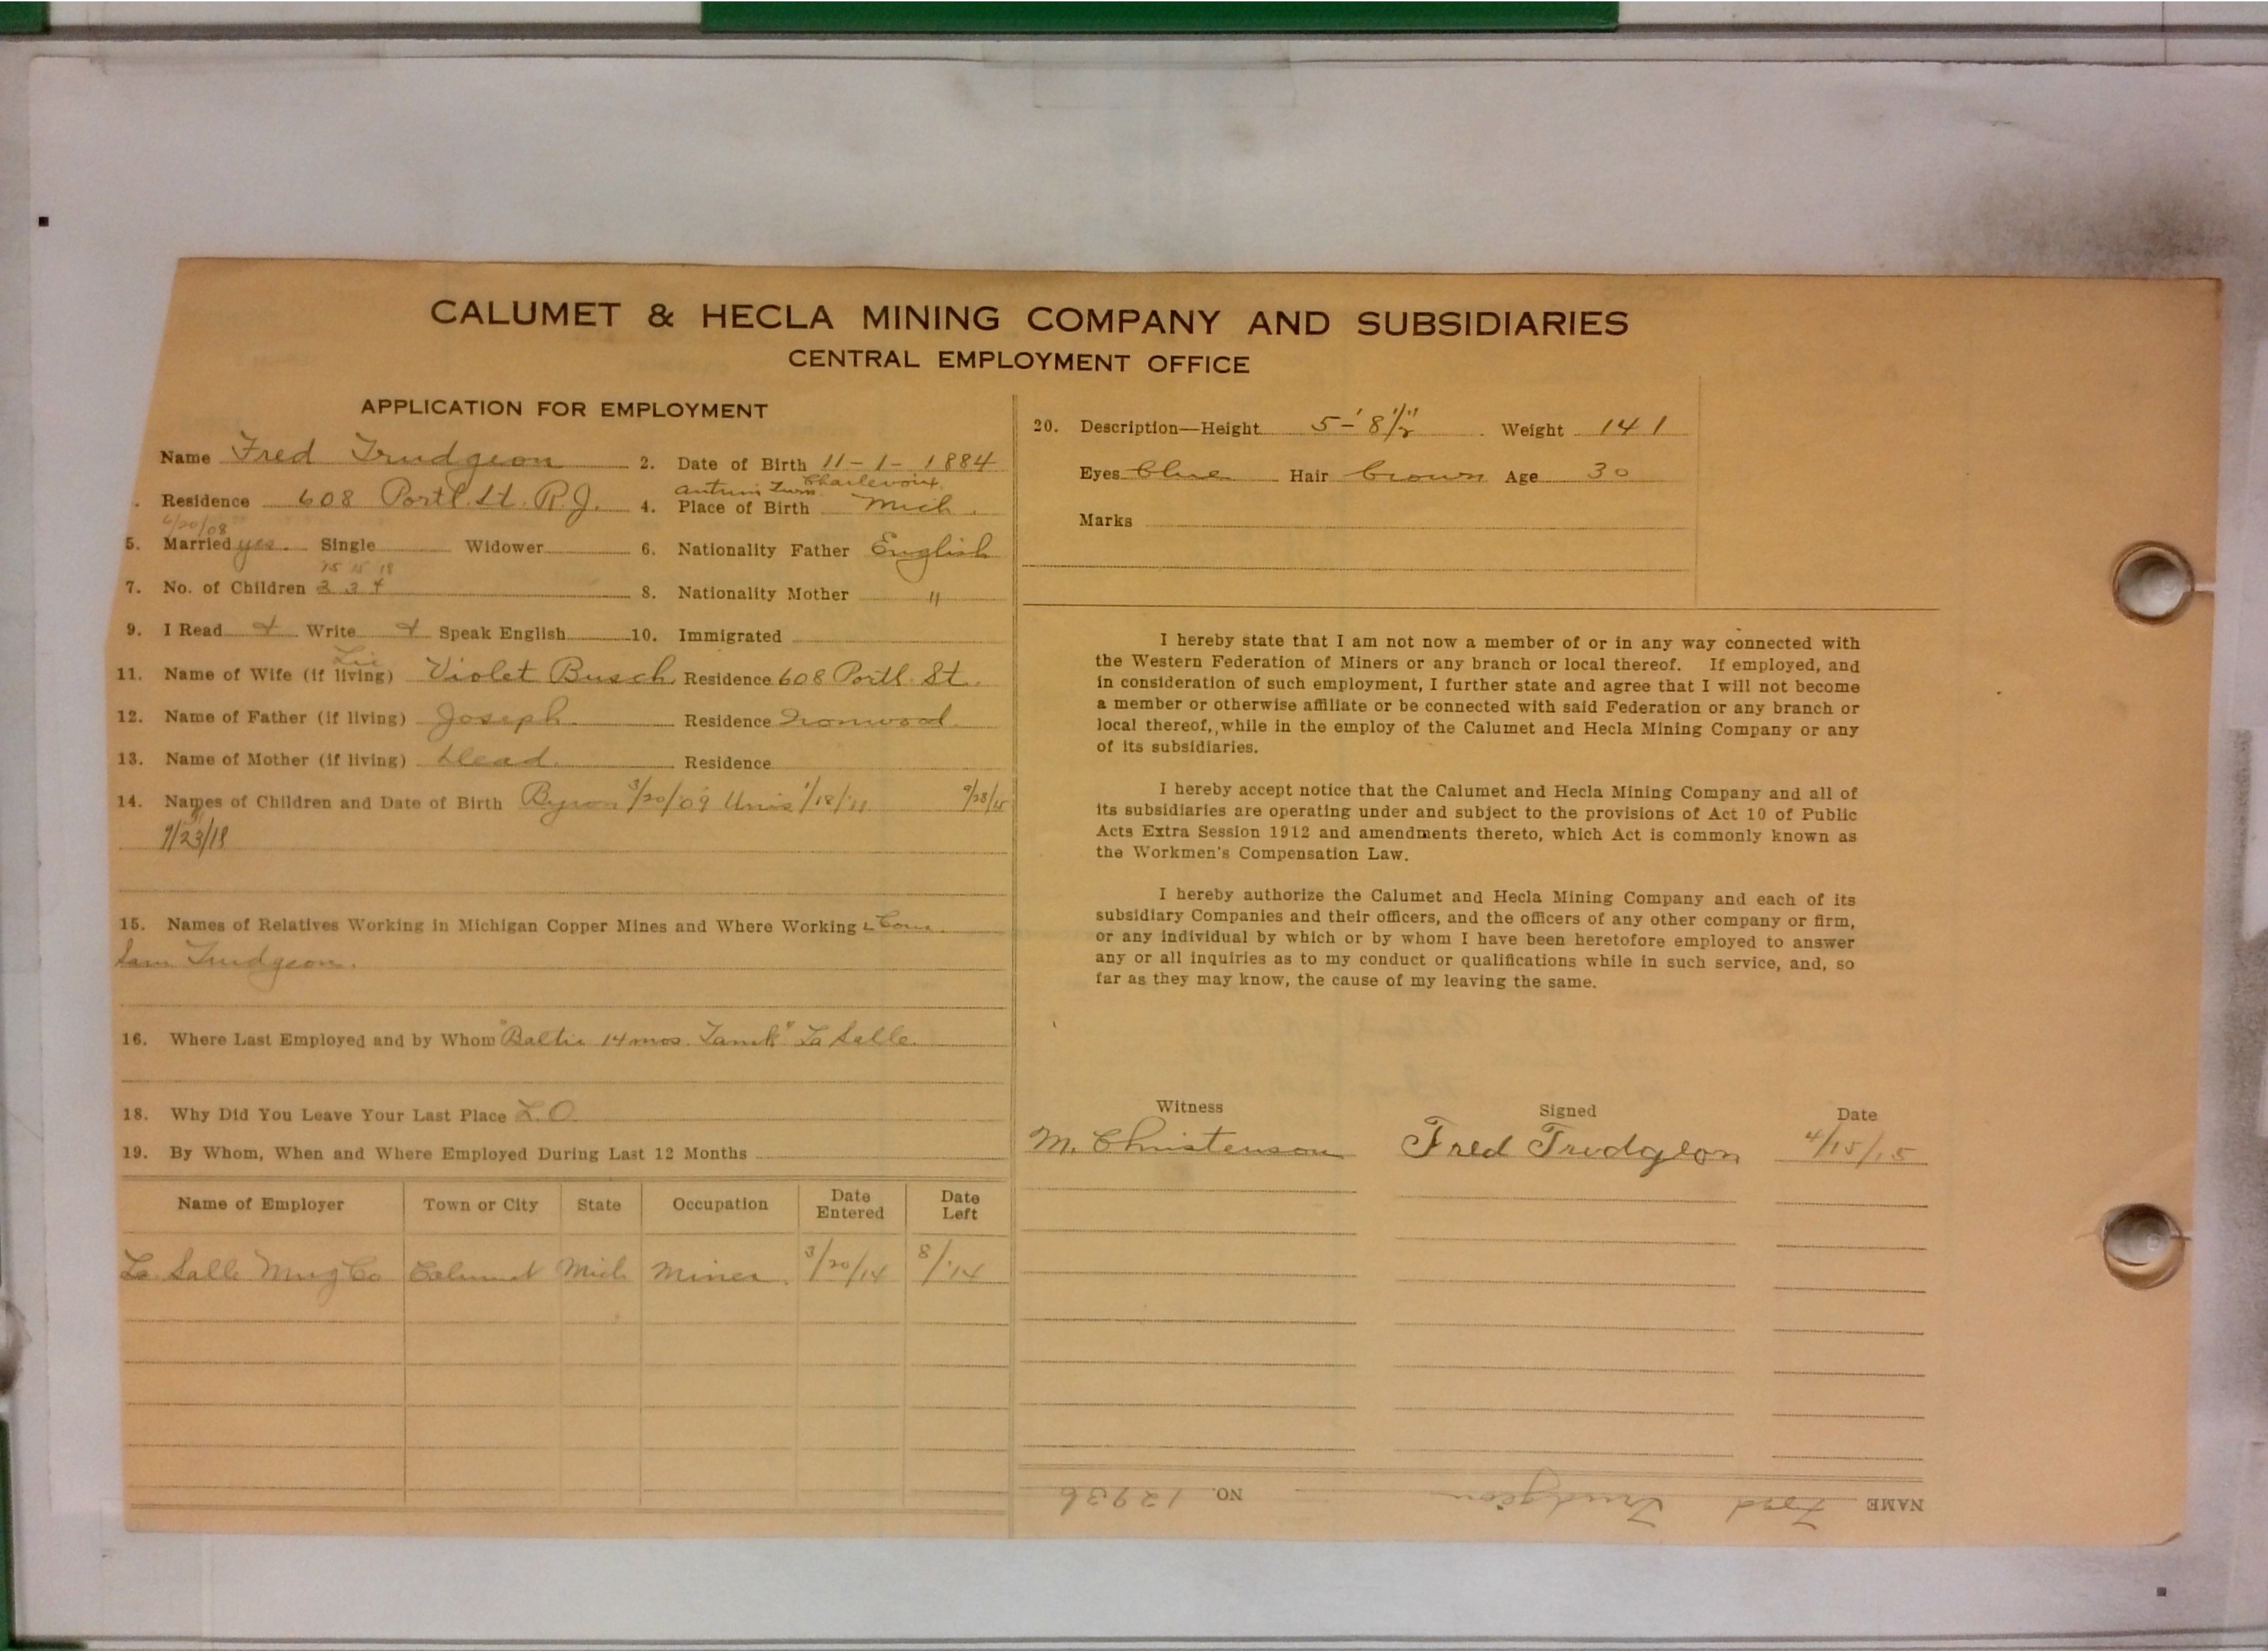 CALUMET & HECLA MINING COMPANY AND SUBSIDIARIES
CENTRAL EMPLOYMENT OFFICE
APPLICATION FOR EMPLOYMENT
Name Fred Trudgeon 2. Date of Birth 11-1-1884
Charlevoix
Residence 608 Portl. St. R.J. 4. Place of Birth Mich.
6/20/08
5. Married yes. Single Widower 6. Nationality Father English
15 15 18
7. No. of Children 2 3 4 8. Nationality Mother "
9. I Read & Write & Speak English 10. Immigrated
11. Name of Wife (if living) Violet Busch Residence 608 Portl. St.
12. Name of Father (if living) Joseph Residence Ironwood
13. Name of Mother (if living) Dead Residence
14. Names of Children and Date of Birth Byron 3/20/09 Unis 1/18/'11 9/28/15
9/23/18
15. Names of Relatives Working in Michigan Copper Mines and Where Working
Sam Trudgeon.
16. Where Last Employed and by Whom "Baltic 14 mos. Tam'k" La Salle.
18. Why Did You Leave Your Last Place L.O.
19. By Whom, When and Where Employed During Last 12 Months
Name of Employer Town or City State Occupation Date Entered Date Left
La Salle Mng Co Calumet Mich Miner. 3/20/14 8/'14
20. Description—Height 5-'8½" Weight 141
Eyes blue Hair brown Age 30
Marks
I hereby state that I am not now a member of or in any way connected with
the Western Federation of Miners or any branch or local thereof. If employed, and
in consideration of such employment, I further state and agree that I will not become
a member or otherwise affiliate or be connected with said Federation or any branch or
local thereof, while in the employ of the Calumet and Hecla Mining Company or any
of its subsidiaries.
I hereby accept notice that the Calumet and Hecla Mining Company and all of
its subsidiaries are operating under and subject to the provisions of Act 10 of Public
Acts Extra Session 1912 and amendments thereto, which Act is commonly known as
the Workmen's Compensation Law.
I hereby authorize the Calumet and Hecla Mining Company and each of its
subsidiary Companies and their officers, and the officers of any other company or firm,
or any individual by which or by whom I have been heretofore employed to answer
any or all inquiries as to my conduct or qualifications while in such service, and, so
far as they may know, the cause of my leaving the same.
Witness Signed Date
M. Christenson Fred Trudgeon 4/15/15
NAME Fred Trudgeon NO. 12936